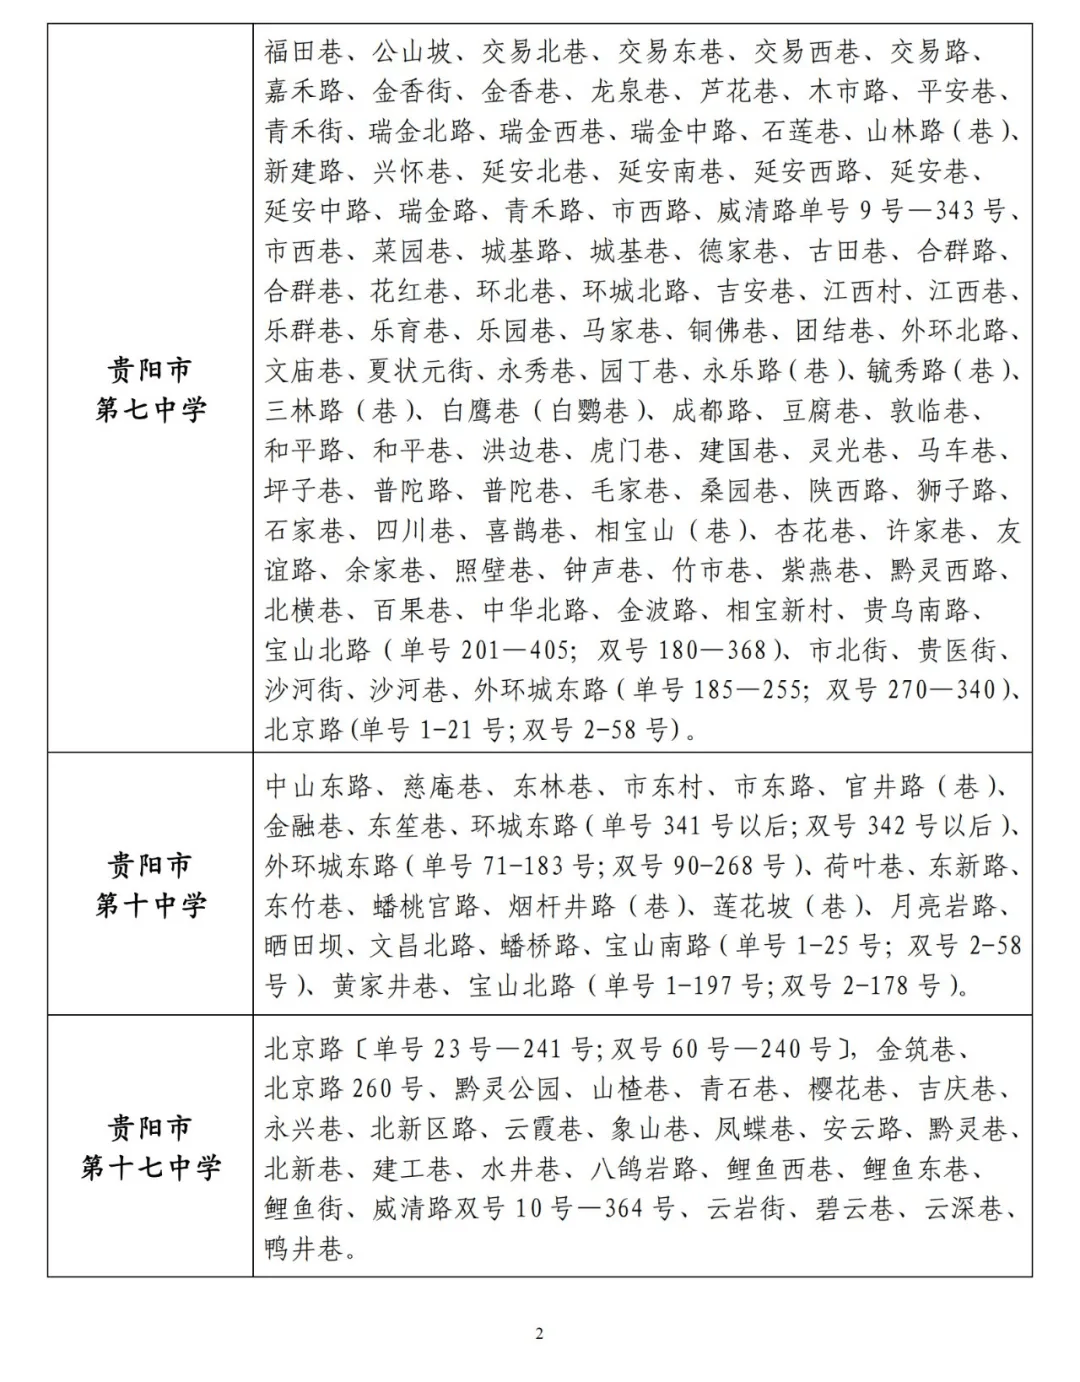 贵阳市
第七中学
福田巷、公山坡、交易北巷、交易东巷、交易西巷、交易路、
嘉禾路、金香街、金香巷、龙泉巷、芦花巷、木市路、平安巷、
青禾街、瑞金北路、瑞金西巷、瑞金中路、石莲巷、山林路(巷)、
新建路、兴怀巷、延安北巷、延安南巷、延安西路、延安巷、
延安中路、瑞金路、青禾路、市西路、威清路单号9号—343号、
市西巷、菜园巷、城基路、城基巷、德家巷、古田巷、合群路、
合群巷、花红巷、环北巷、环城北路、吉安巷、江西村、江西巷、
乐群巷、乐育巷、乐园巷、马家巷、铜佛巷、团结巷、外环北路、
文庙巷、夏状元街、永秀巷、园丁巷、永乐路(巷)、毓秀路(巷)、
三林路(巷)、白鹰巷(白鹦巷)、成都路、豆腐巷、敦临巷、
和平路、和平巷、洪边巷、虎门巷、建国巷、灵光巷、马车巷、
坪子巷、普陀路、普陀巷、毛家巷、桑园巷、陕西路、狮子路、
石家巷、四川巷、喜鹊巷、相宝山(巷)、杏花巷、许家巷、友
谊路、余家巷、照壁巷、钟声巷、竹市巷、紫燕巷、黔灵西路、
北横巷、百果巷、中华北路、金波路、相宝新村、贵乌南路、
宝山北路(单号201—405;双号180—368)、市北街、贵医街、
沙河街、沙河巷、外环城东路(单号185—255;双号270—340)、
北京路(单号1-21号;双号2-58号)。
贵阳市
第十中学
中山东路、慈庵巷、东林巷、市东村、市东路、官井路(巷)、
金融巷、东笙巷、环城东路(单号341号以后;双号342号以后)、
外环城东路(单号71-183号;双号90-268号)、荷叶巷、东新路、
东竹巷、蟠桃宫路、烟杆井路(巷)、莲花坡(巷)、月亮岩路、
晒田坝、文昌北路、蟠桥路、宝山南路(单号1-25号;双号2-58
号)、黄家井巷、宝山北路(单号1-197号;双号2-178号)。
贵阳市
第十七中学
北京路〔单号23号—241号;双号60号—240号〕,金筑巷、
北京路260号、黔灵公园、山楂巷、青石巷、樱花巷、吉庆巷、
永兴巷、北新区路、云霞巷、象山巷、凤蝶巷、安云路、黔灵巷、
北新巷、建工巷、水井巷、八鸽岩路、鲤鱼西巷、鲤鱼东巷、
鲤鱼街、威清路双号10号—364号、云岩街、碧云巷、云深巷、
鸭井巷。
2